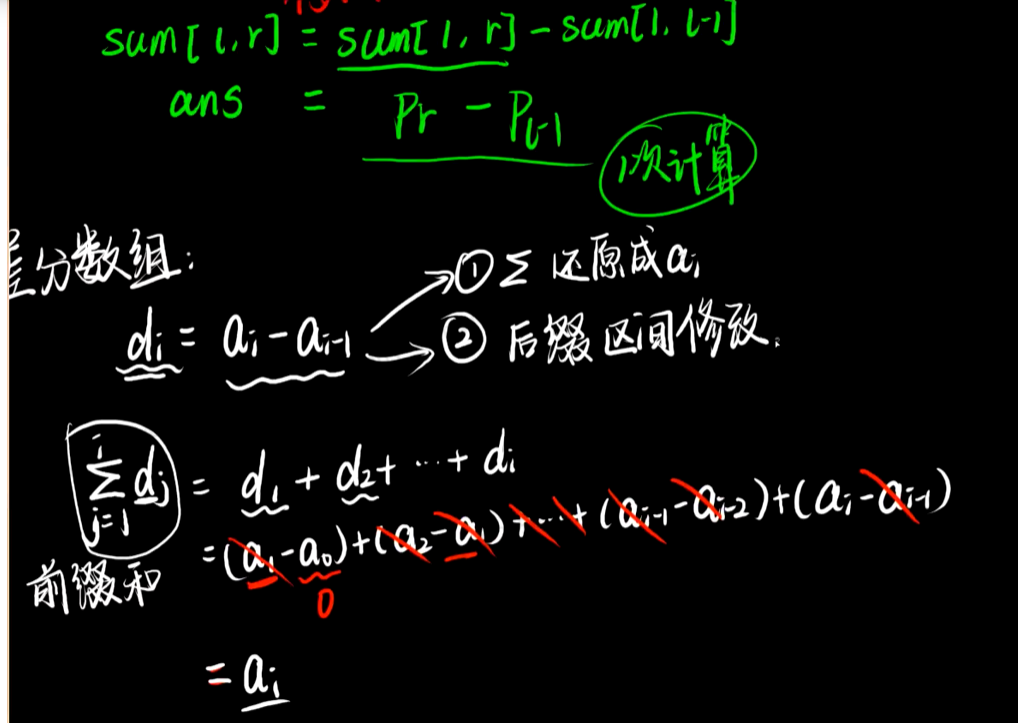 sum[l,r] = sum[1,r] - sum[1,l-1]
ans = Pr - Pl-1
1次计算
差分数组:
① Σ 还原成ai
di = ai - ai-1
② 后缀区间修改.
i
Σ dj = d1 + d2 + ... + di
j=1
= (a1 - a0) + (a2 - a1) + ... + (ai-1 - ai-2) + (ai - ai-1)
前缀和
0
= ai